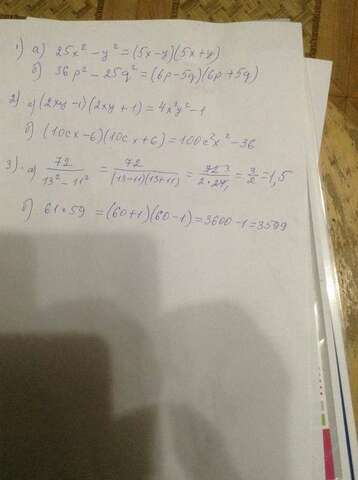 1) а) 25x² - y² = (5x-y)(5x+y)
б) 36p² - 25q² = (6p-5q)(6p+5q)
2) а) (2xy-1)(2xy+1) = 4x²y²-1
б) (10cx-6)(10cx+6) = 100c²x²-36
3) а) 72/(13²-11²) = 72/((13-11)(13+11)) = 72³/(2·24₁) = 3/2 = 1,5
б) 61·59 = (60+1)(60-1) = 3600-1 = 3599